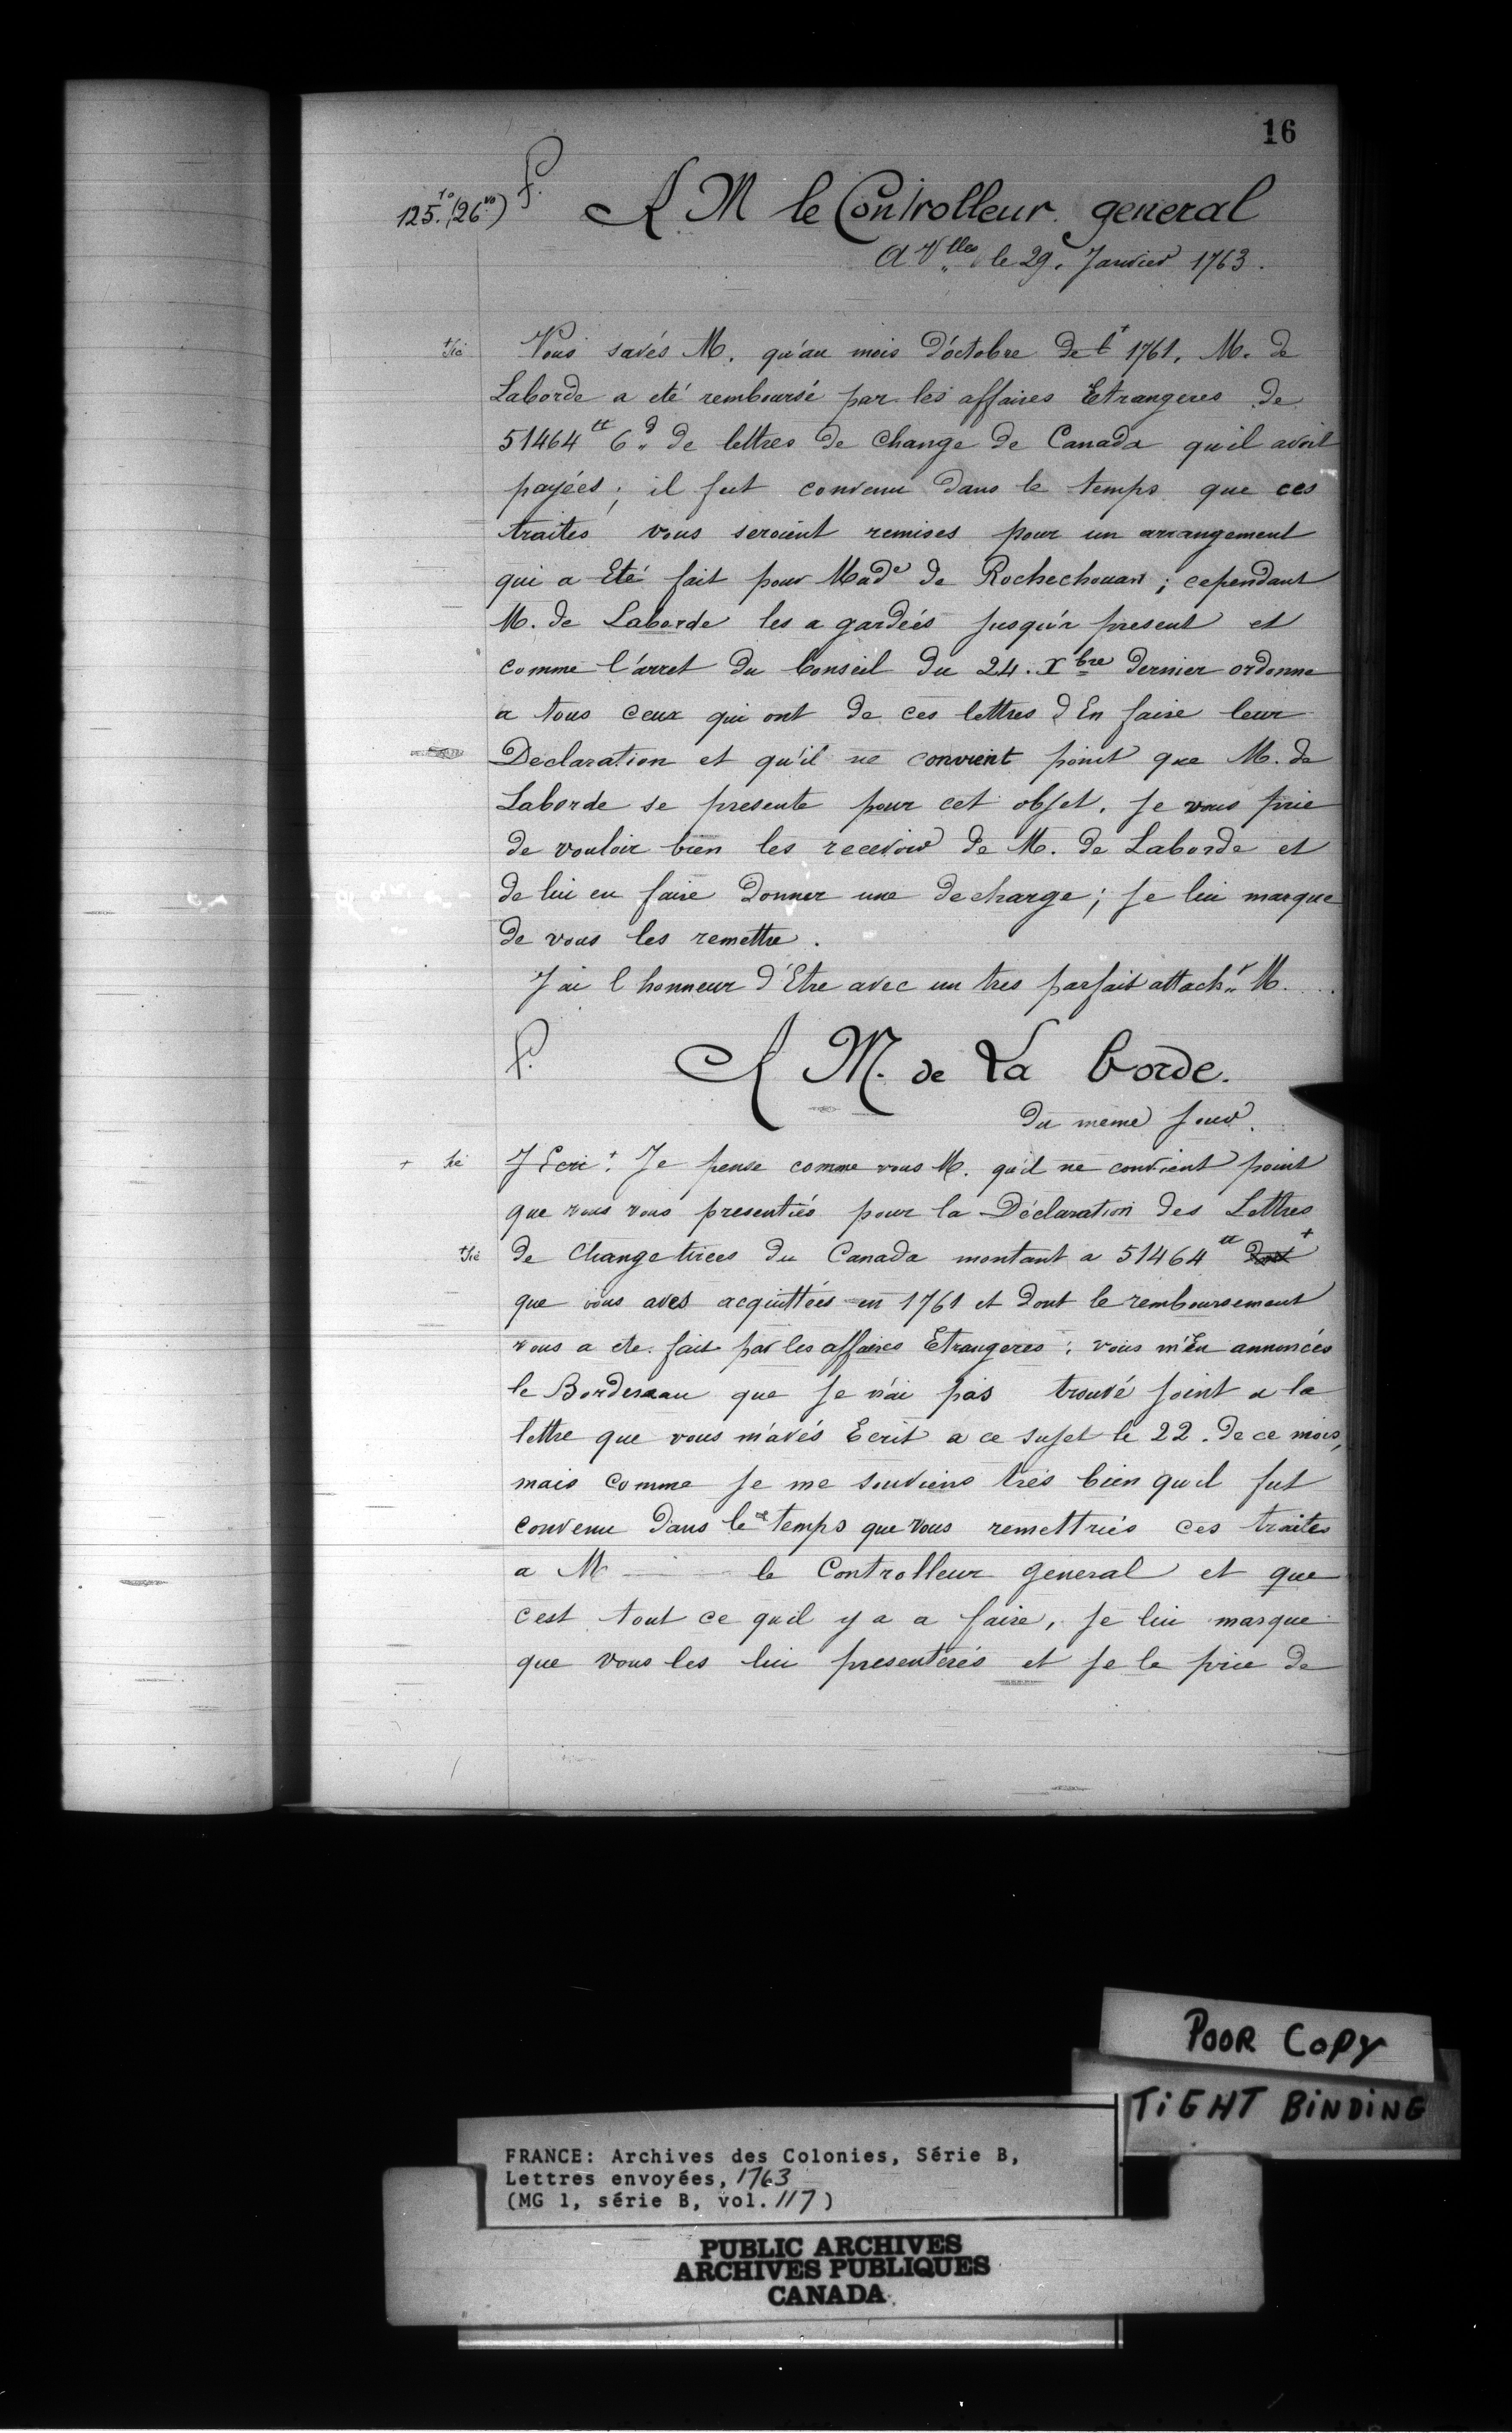 16
125.ro (26vo) F. A M le Controlleur general
A Vlles le 29. Janvier 1763.
+sic Vous savés M. qu'au mois d'octobre de l+ 1761, M. de
Laborde a eté remboursé par les affaires Etrangeres de
51464tt 6d de lettres de Change de Canada qu'il avoit
payées; il fut convenu dans le temps que ces
traites vous seroient remises pour un arrangement
qui a Eté fait pour Made de Rochechouart; cependant
M. de Laborde les a gardées jusqu'à present et
comme l'arret du Conseil du 24. Xbre dernier ordonne
a tous ceux qui ont de ces lettres d'En faire leur
Declaration et qu'il ne convient point que M. de
Laborde se presente pour cet objet. Je vous prie
de vouloir bien les recevoir de M. de Laborde et
de lui en faire donner une decharge; je lui marque
de vous les remettre.
J'ai l honneur d'Etre avec un tres parfait attach. M....
F. A M. de La borde.
du meme jour.
+ sic J'Ecri+. Je pense comme vous M. qu'il ne convient point
que vous vous presentiés pour la Déclaration des Lettres
+sic de Change tirees du Canada montant a 51464tt dont+
que vous avés acquittées en 1761 et dont le remboursement
vous a ete fait par les affaires Etrangeres: vous m'En annoncés
le Bordereau que je n'ai pas trouvé joint a la
lettre que vous m'avés Ecrit a ce sujet le 22. de ce mois,
mais comme je me souviens très bien qu'il fut
convenu dans le temps que vous remettriés ces traites
a M le Controlleur general et que
c'est tout ce qu'il y a a faire, je lui marque
que vous les lui presenterés et je le prie de
POOR COPY
TIGHT BINDING
FRANCE: Archives des Colonies, Série B,
Lettres envoyées, 1763
(MG 1, série B, vol. 117)
PUBLIC ARCHIVES
ARCHIVES PUBLIQUES
CANADA